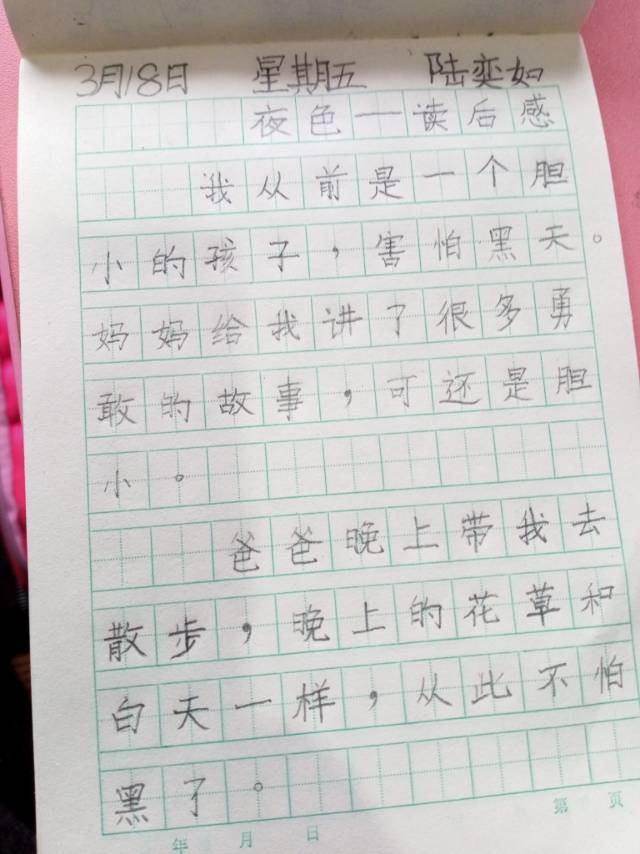 3月18日 星期五 陆奕如
夜色一读后感
我从前是一个胆
小的孩子，害怕黑天。
妈妈给我讲了很多勇
敢的故事，可还是胆
小。
爸爸晚上带我去
散步，晚上的花草和
白天一样，从此不怕
黑了。
年 月 日 第 页